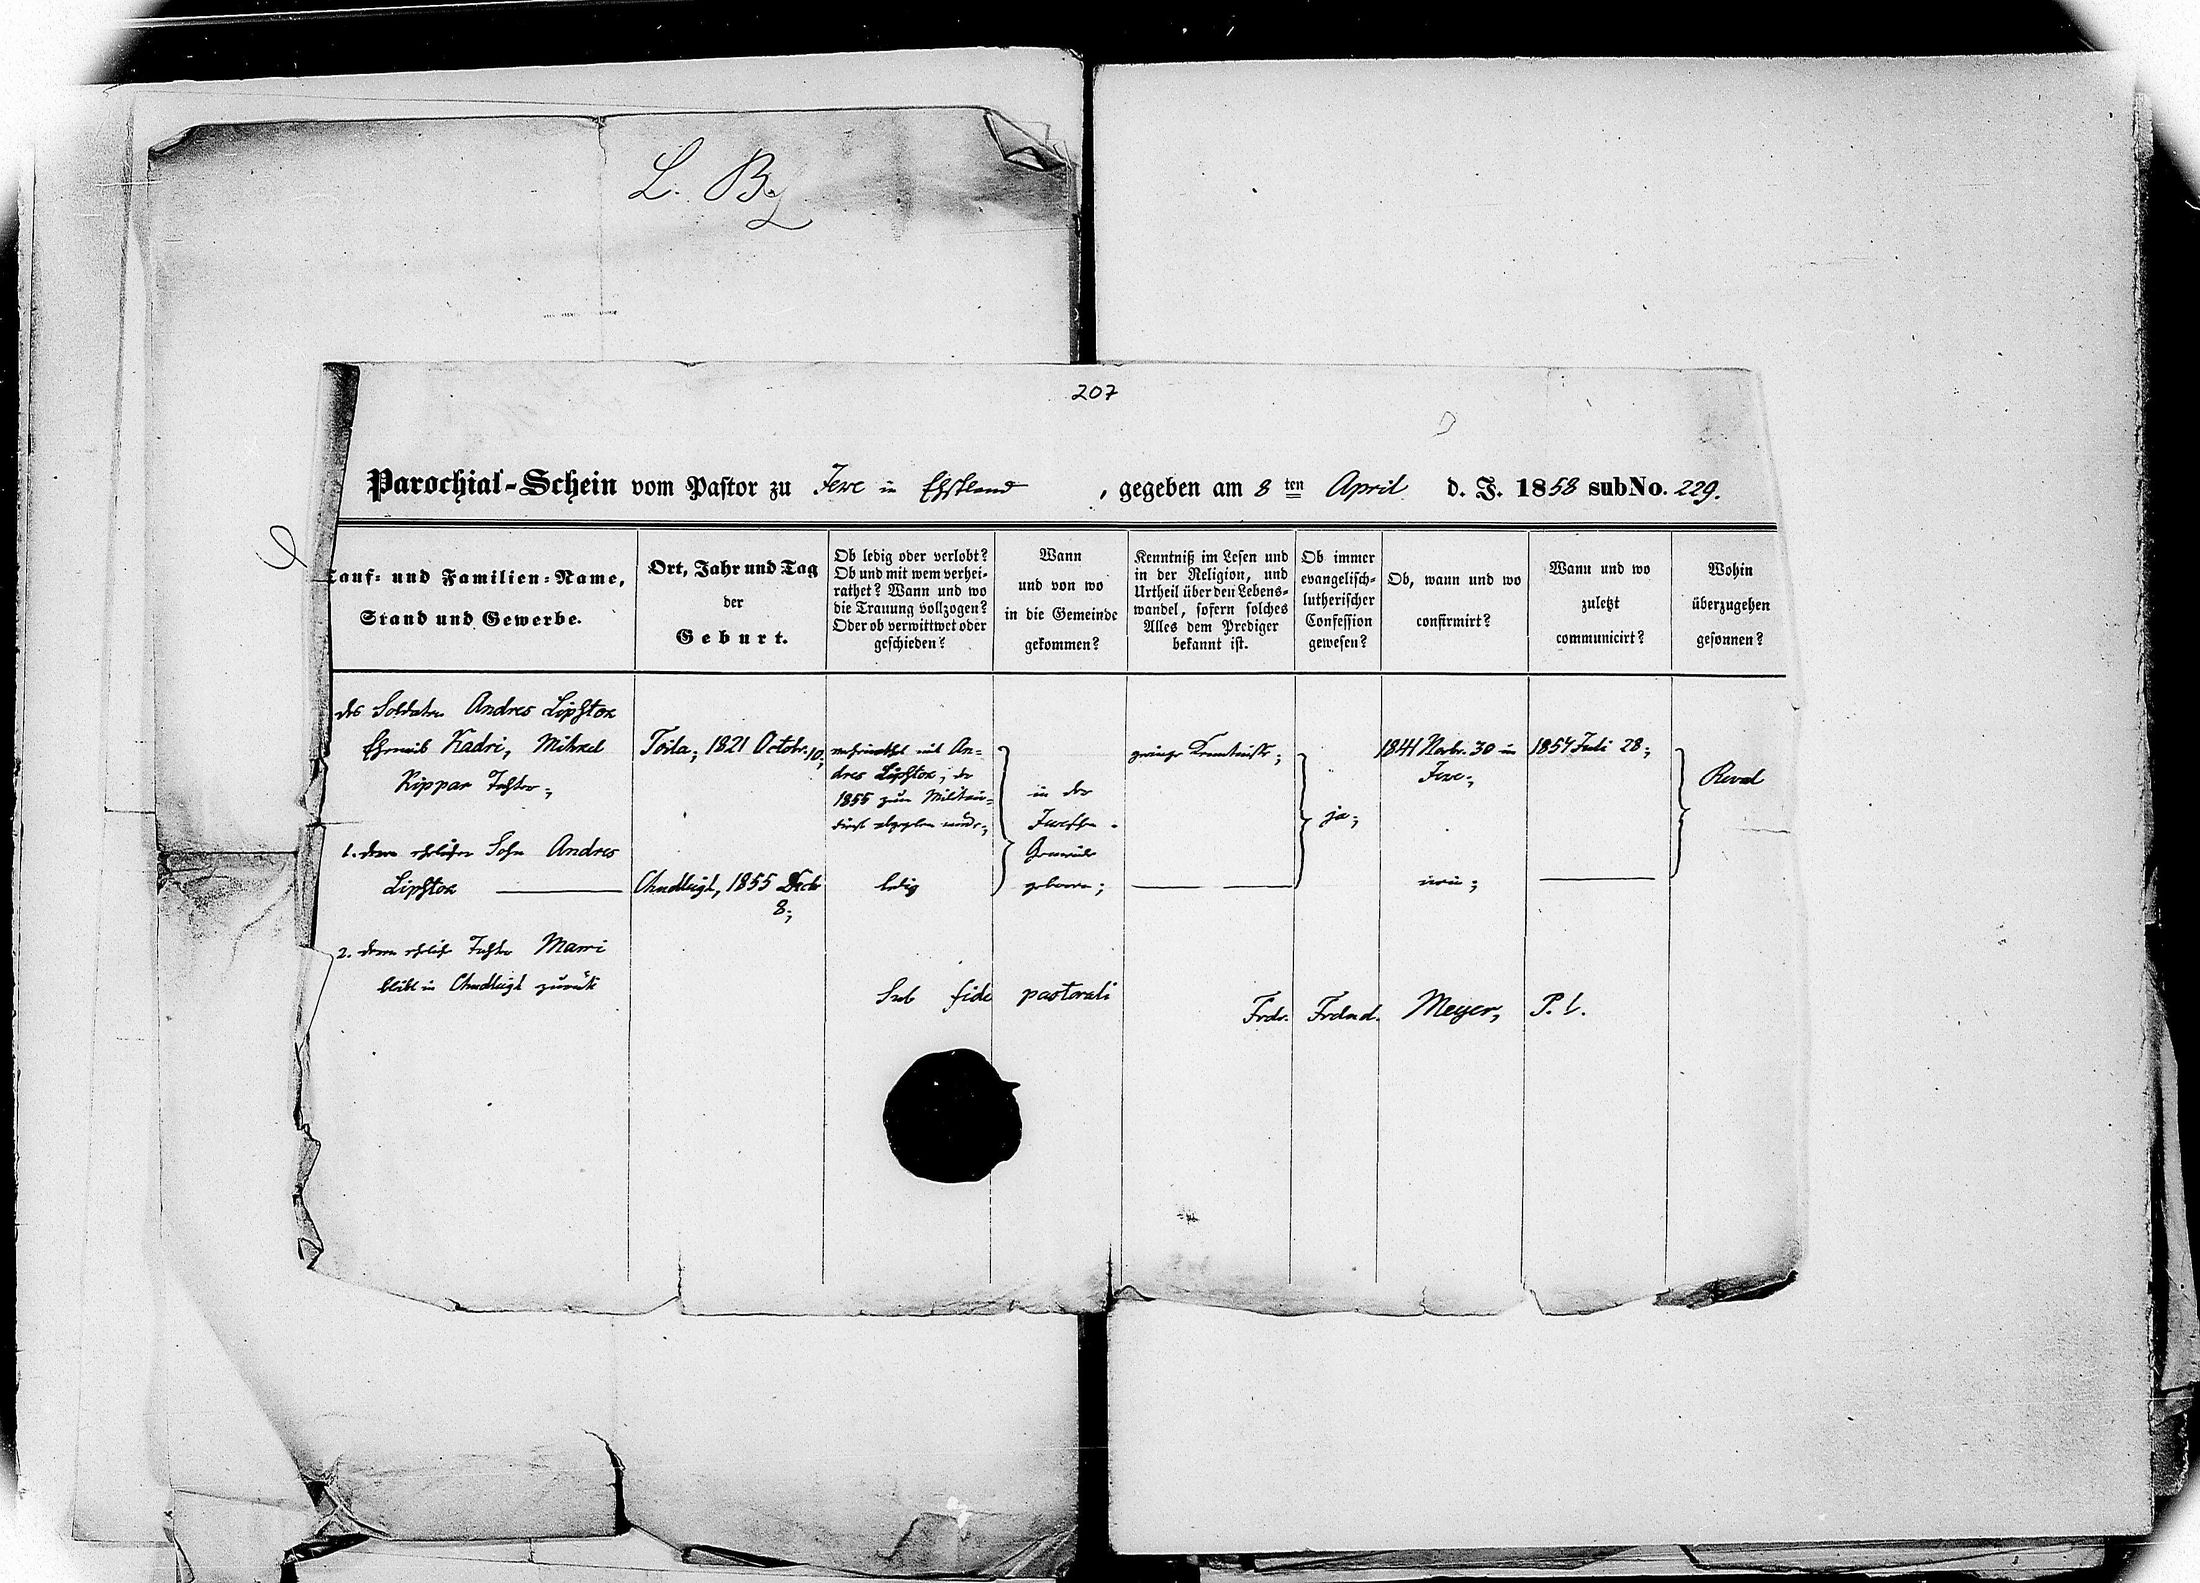 L. B.
207
Parochial-Schein vom Pastor zu Jewe in Ehstland, gegeben am 8 ten April d. J. 1858 sub No. 229.
Tauf- und Familien-Name,
Stand und Gewerbe.
Ort, Jahr und Tag
der
Geburt.
Ob ledig oder verlobt?
Ob und mit wem verhei-
rathet? Wann und wo
die Trauung vollzogen?
Oder ob verwittwet oder
geschieden?
Wann
und von wo
in die Gemeinde
gekommen?
Kenntniß im Lesen und
in der Religion, und
Urtheil über den Lebens-
wandel, sofern solches
Alles dem Prediger
bekannt ist.
Ob immer
evangelisch-
lutherischer
Confession
gewesen?
Ob, wann und wo
confirmirt?
Wann und wo
zuletzt
communicirt?
Wohin
überzugehen
gesonnen?
des Soldaten Andres Lipstok
Eheweib Kadri, Mihkel
Kippar Tochter;
Toila; 1821 Octobr. 10;
verheirathet mit An-
dres Lipstok, der
1855 zum Militair-
dienst abgegeben wurde;
in der
Jeweschen
Gemeinde
geboren;
geringe Kenntnisse;
ja;
1841 Novbr. 30 in
Jewe;
1857 Juli 28;
Reval
1. deren ehelicher Sohn Andres
Lipstok
Chudleigh, 1855 Decbr
8;
ledig
nein;
2. deren eheliche Tochter Marri
bleibt in Chudleigh zurück
Sub fide pastorali
Frdr. Frdnd. Meyer, P. l.